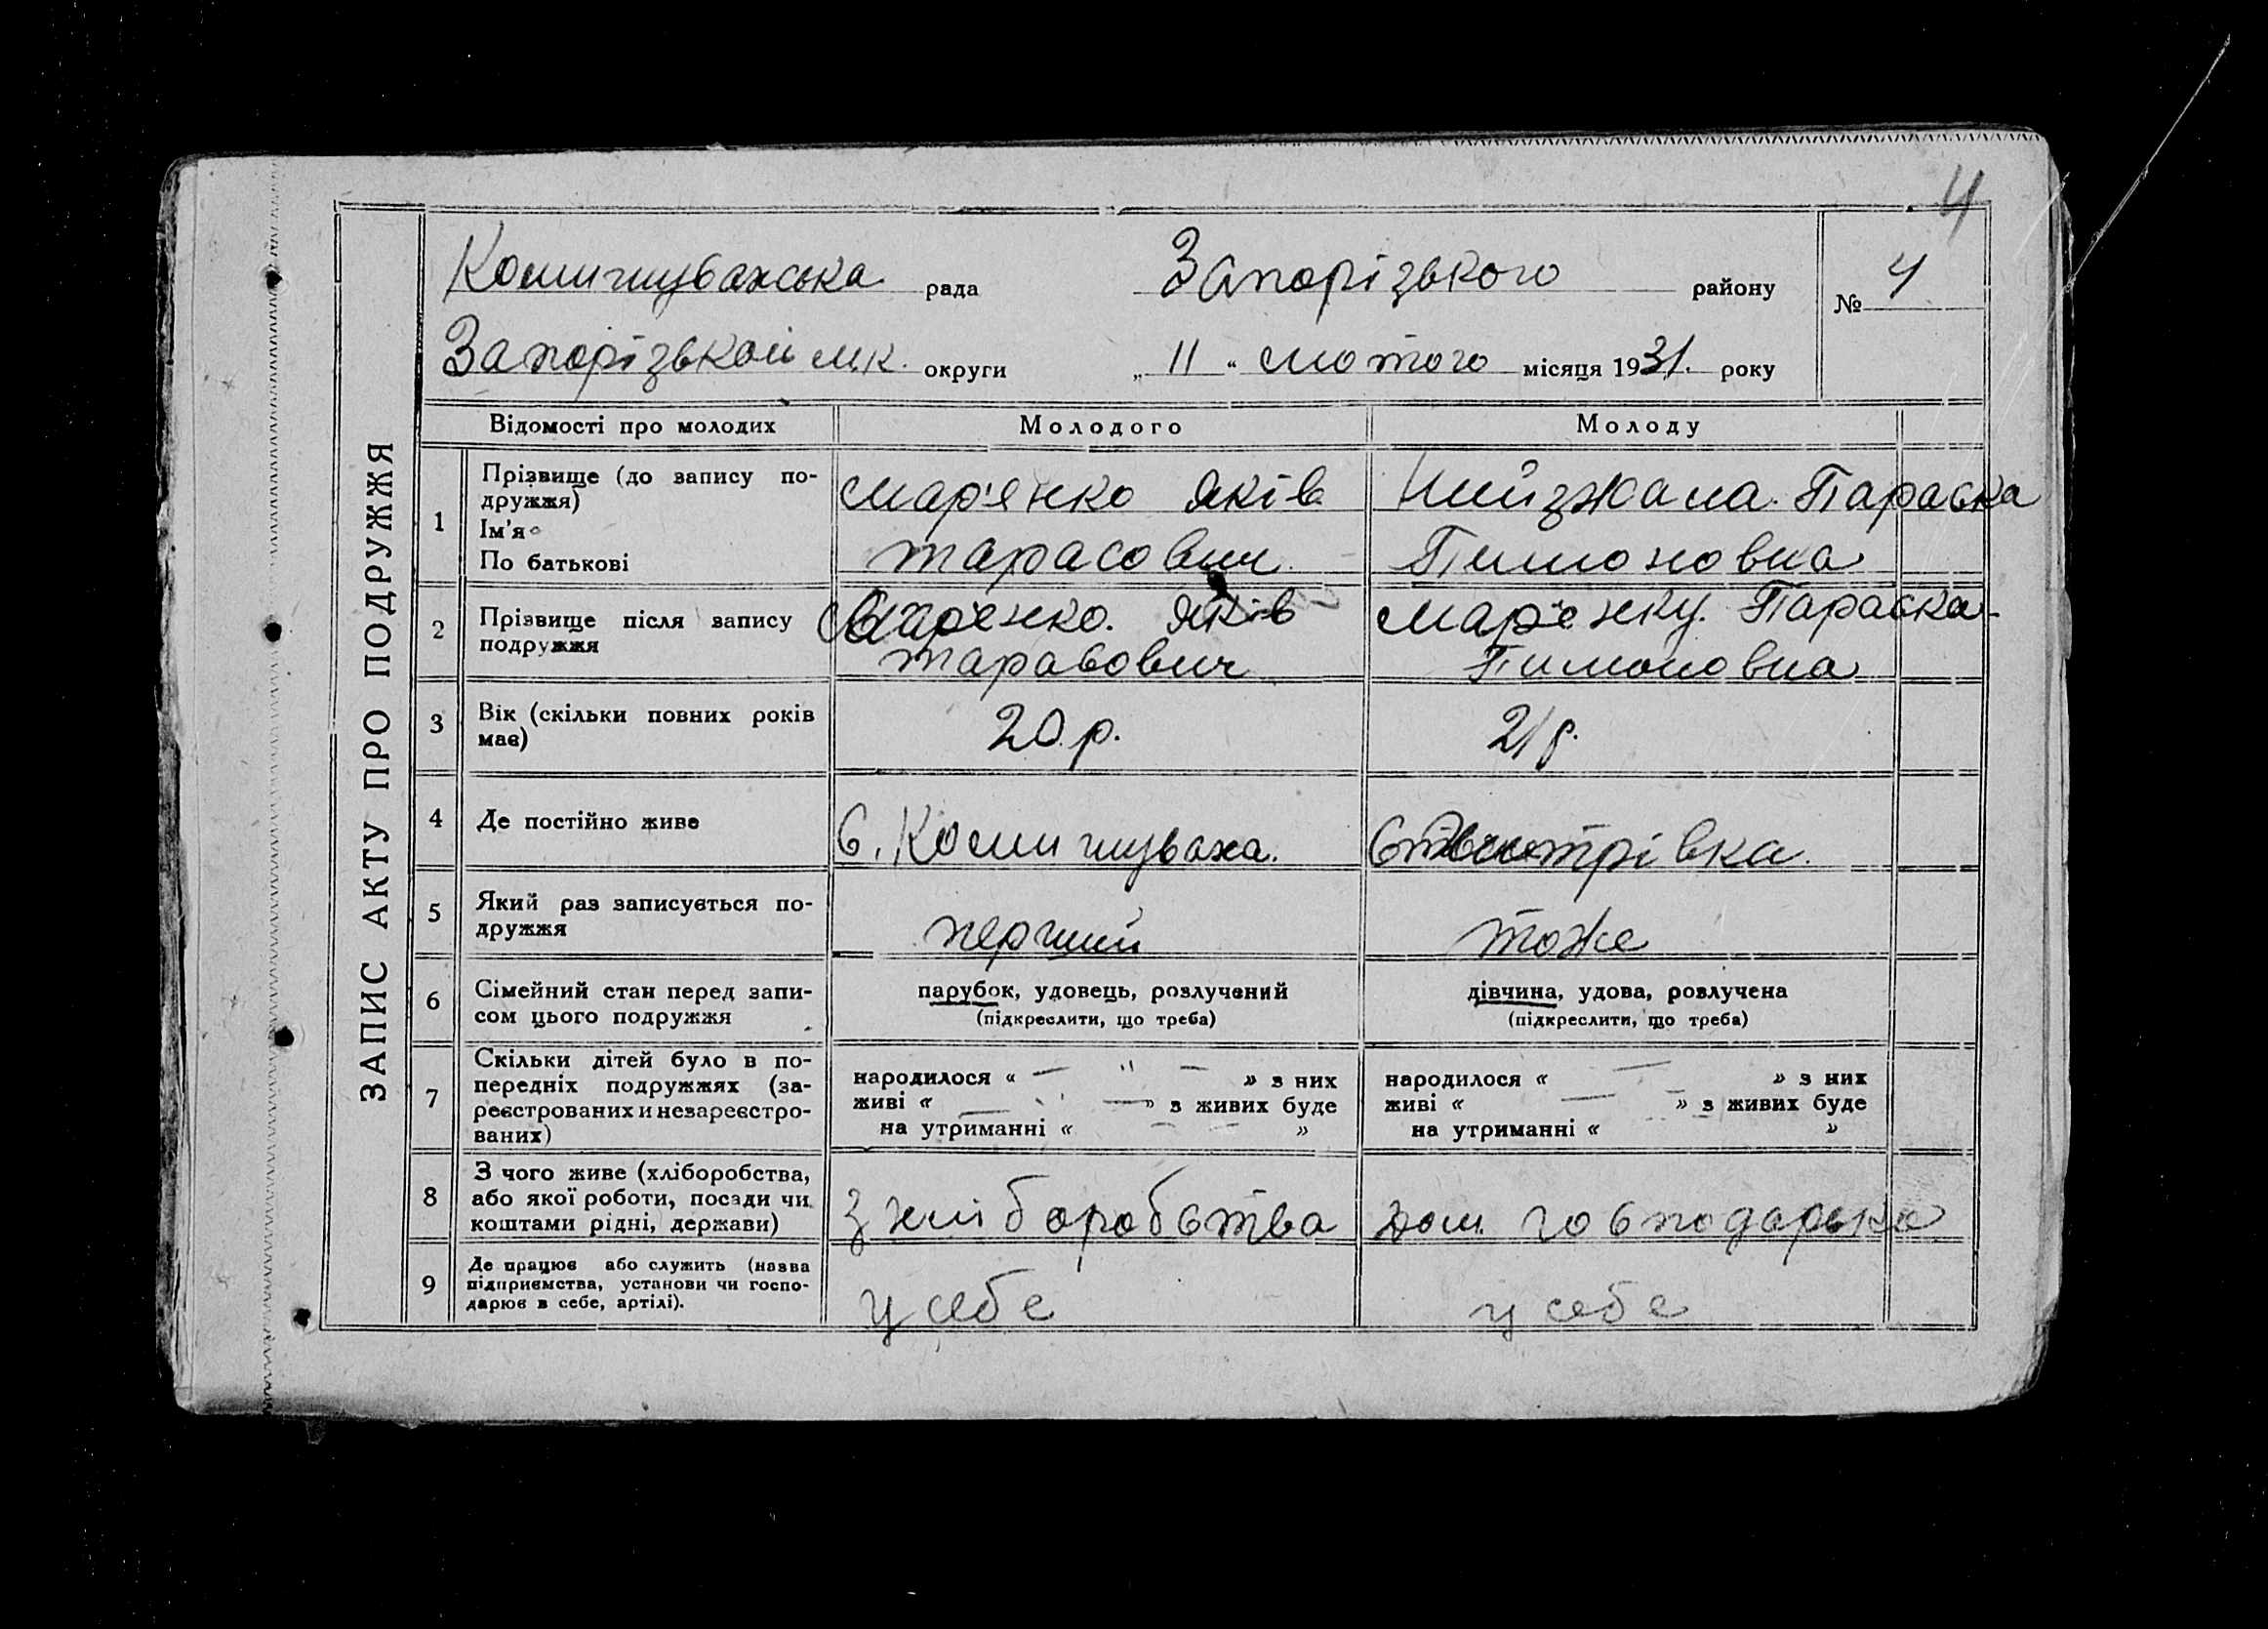 4
ЗАПИС АКТУ ПРО ПОДРУЖЖЯ
Комишувахська рада Запорізького району № 4
Запорізькой м.к. округи „ 11 “ лютого місяця 1931. року
Відомості про молодих Молодого Молоду
1 Прізвище (до запису по-
дружжя)
Ім'я
По батькові
Мар'янко Яків
Тарасович
Параска
Пимоновна
2 Прізвище після запису
подружжя
Мар'енко. Яків
Тарасович
Мар'енку. Параска
Пимоновна
3 Вік (скільки повних років
має)
20 р.
21 р.
4 Де постійно живе
С. Комишуваха.
5 Який раз записується по-
дружжя
перший
тоже
6 Сімейний стан перед запи-
сом цього подружжя
парубок, удовець, розлучений
(підкреслити, що треба)
дівчина, удова, розлучена
(підкреслити, що треба)
7 Скільки дітей було в по-
передніх подружжях (за-
реєстрованих и незареєстро-
ваних)
народилося « — " — » з них
живі « — — » з живих буде
на утриманні « — — »
народилося « — » з них
живі « — — » з живих буде
на утриманні « — — »
8 З чого живе (хліборобства,
або якої роботи, посади чи
коштами рідні, держави)
з хліборобства
дом. господарька
9 Де працює або служить (назва
підприємства, установи чи госпо-
дарює в себе, артілі).
у себе
у себе